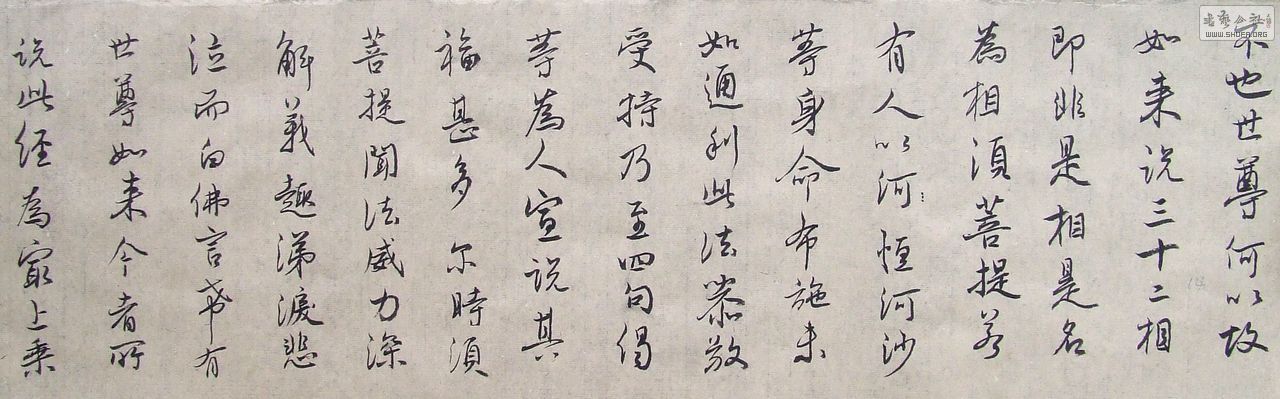 不也世尊何以故
如来说三十二相
即非是相是名
為相須菩提若
有人以河恒河沙
等身命布施未
如通利此法恭敬
受持乃至四句偈
等為人宣说其
福甚多尔時須
菩提聞法威力深
解義趣涕淚悲
泣而白佛言希有
世尊如来今者所
说此经為最上乗
WWW.SHOER.ORG